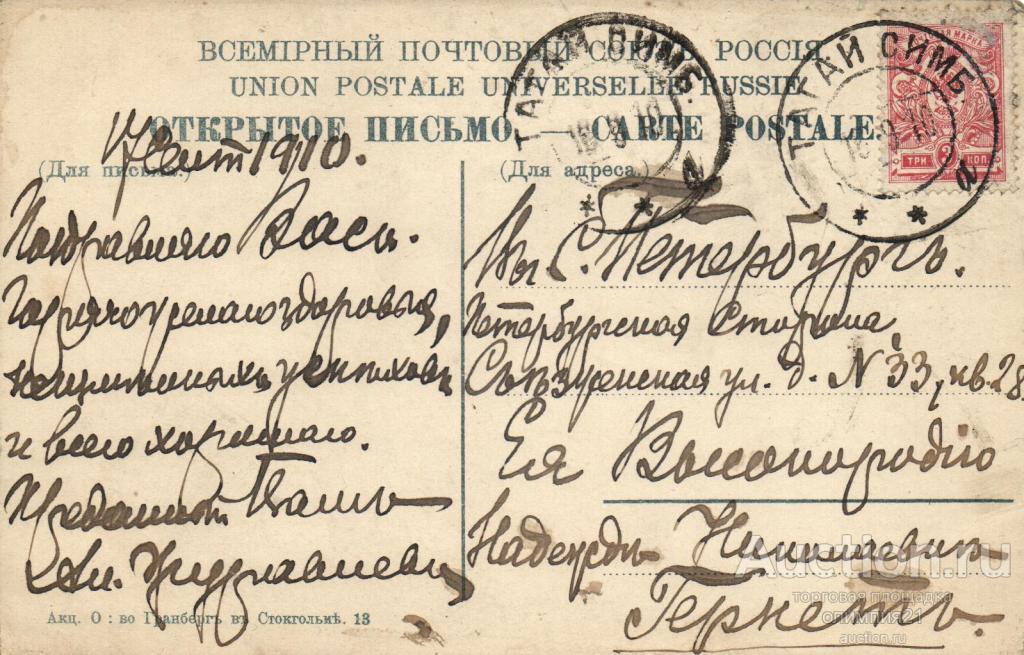 ВСЕМІРНЫЙ ПОЧТОВЫЙ СОЮЗЪ. РОССІЯ
UNION POSTALE UNIVERSELLE. RUSSIE
ОТКРЫТОЕ ПИСЬМО. — CARTE POSTALE
ТАГАЙ СИМБ.
ТАГАЙ СИМБ.
а
а
ТРИ 3 КОП.
(Для письма.)
7 Сент 1910.
Поздравляю Васъ.
Горячо желаю здоровья,
успѣховъ
и всего хорошаго.
Преданный Вамъ
Ал.
Акц. О: во Гранбергъ въ Стокгольмѣ. 13
(Для адреса.)
Въ С. Петербургъ.
Петербургская Сторона,
ул. д. № 33, кв. 28.
Ея Высокородію
Надеждѣ Николаевнѣ
Гернетъ.
Auction.ru
торговая площадка
олимпия21
auction.ru